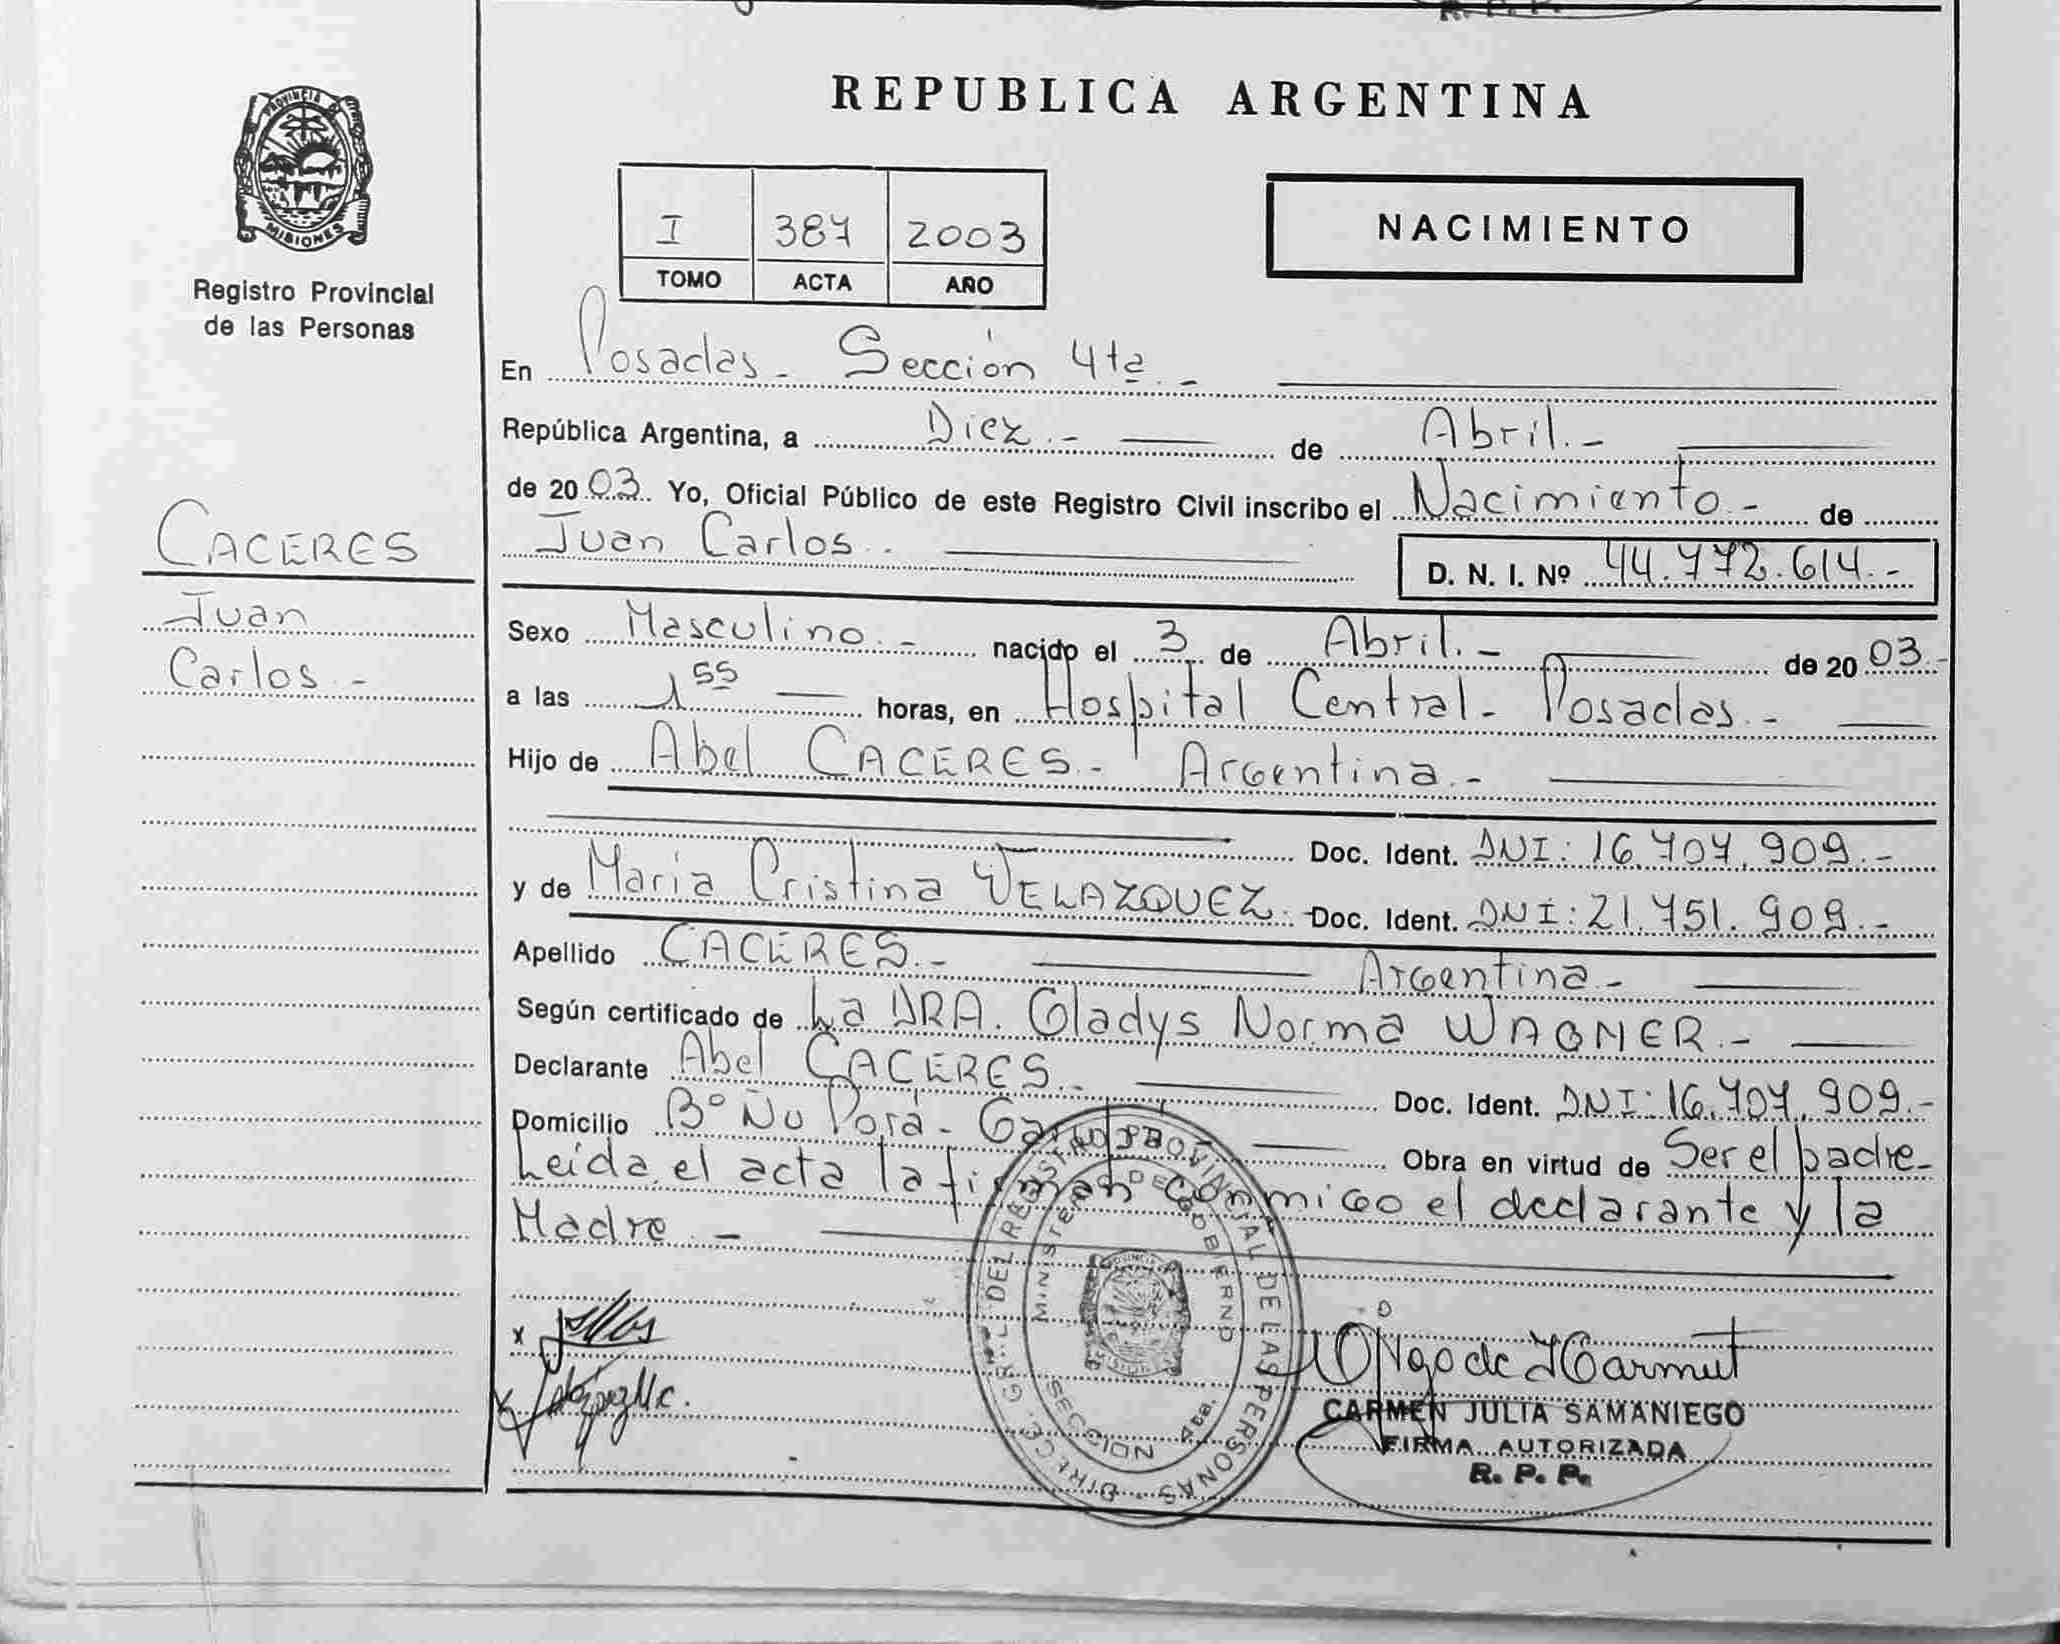 PROVINCIA DE
MISIONES
Registro Provincial
de las Personas
CACERES
Juan
Carlos.-
R. P. P.
REPUBLICA ARGENTINA
I 387 2003
TOMO ACTA AÑO
NACIMIENTO
En Posadas - Sección 4ta.-
República Argentina, a Diez.- de Abril.-
de 2003. Yo, Oficial Público de este Registro Civil inscribo el Nacimiento.- de
Juan Carlos.
D. N. I. Nº 44.772.614.-
Sexo Masculino.- nacido el 3 de Abril.- de 2003.-
a las 1 55 horas, en Hospital Central - Posadas.-
Hijo de Abel CACERES.- Argentina.-
Doc. Ident. DNI: 16.707.909.-
y de Maria Cristina VELAZQUEZ.- Doc. Ident. DNI: 21.751.909.-
Apellido CACERES.- Argentina.-
Según certificado de La DRA. Gladys Norma WAGNER.-
Declarante Abel CACERES.- Doc. Ident. DNI: 16.707.909.-
Domicilio Bº Ñu Porá - Obra en virtud de Ser el padre-
Leída el acta la firman conmigo el declarante y la
Madre.-
DIRECC. GRAL. DEL REGISTRO PROVINCIAL DE LAS PERSONAS
MINISTERIO DE GOBIERNO
SECCION 4ta.
CARMEN JULIA SAMANIEGO
FIRMA AUTORIZADA
R. P. P.